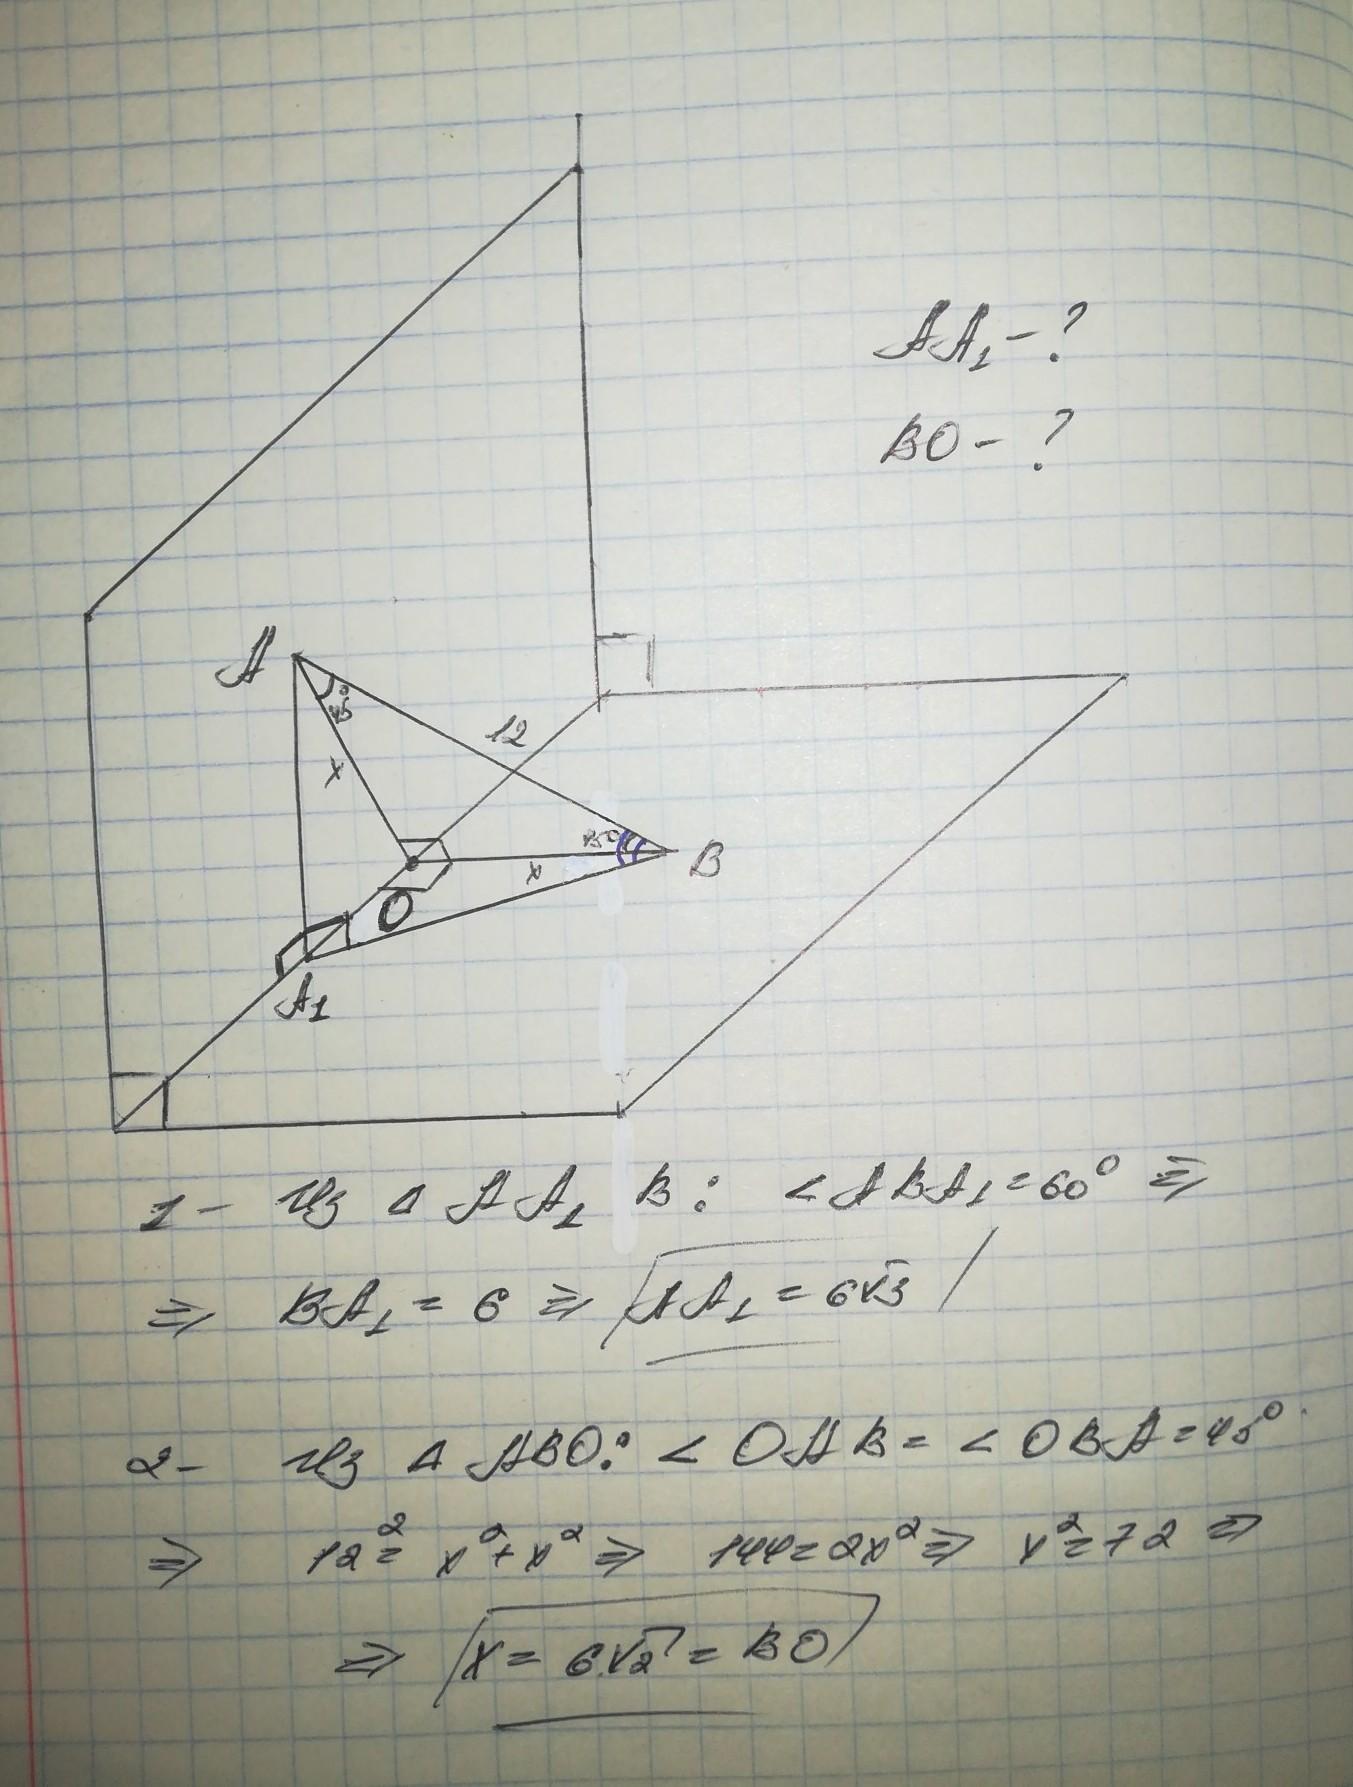 AA₁ - ?
BO - ?
A
45°
x
12
45°
B
x
O
A₁
1 - Из Δ AA₁B: < ABA₁ = 60° ⇒
⇒ BA₁ = 6 ⇒ AA₁ = 6√3
2 - Из Δ ABO: < OAB = < OBA = 45°
⇒ 12² = x² + x² ⇒ 144 = 2x² ⇒ x² = 72 ⇒
⇒ x = 6√2 = BO